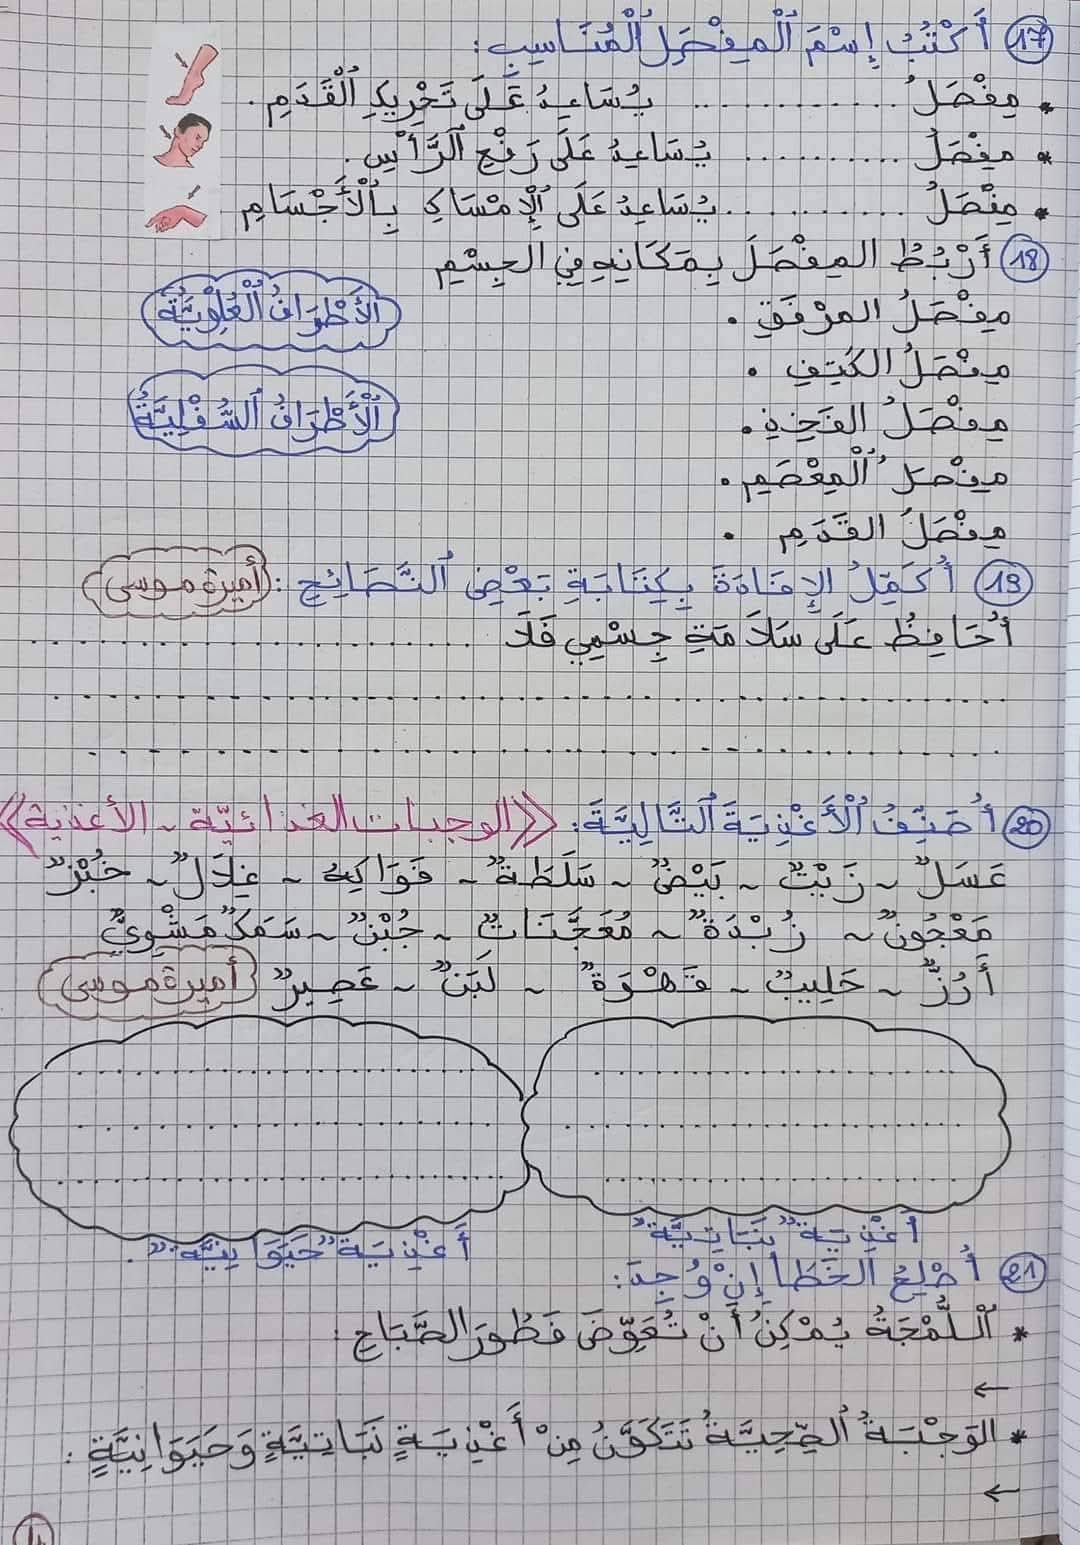 17 أَكْتُبُ إِسْمَ ٱلْمِفْصَلِ ٱلْمُنَاسِبِ:
• مِفْصَلُ .............. يُسَاعِدُ عَلَى تَحْرِيكِ ٱلْقَدَمِ .
* مِفْصَلُ ............ يُسَاعِدُ عَلَى رَفْعِ ٱلرَّأْسِ .
• مِفْصَلُ ............ يُسَاعِدُ عَلَى ٱلْإِمْسَاكِ بِٱلْأَجْسَامِ
18 أَرْبُطُ المِفْصَلَ بِمَكَانِهِ فِي الجِسْمِ
مِفْصَلُ المِرْفَقِ •
ٱلْأَطْرَافُ ٱلْعُلْوِيَّةُ
مِفْصَلُ الكَتِفِ •
مِفْصَلُ الفَخِذِ •
ٱلْأَطْرَافُ ٱلسُّفْلِيَّةُ
مِفْصَلُ ٱلْمِعْصَمِ •
مِفْصَلُ القَدَمِ •
19 أُكَمِّلُ الإِفَادَةَ بِكِتَابَةِ بَعْضِ ٱلنَّصَائِحِ : أميرة موسى
أُحَافِظُ عَلَى سَلَامَةِ جِسْمِي فَلَا ....................
........................................
........................................
20 أُصَنِّفُ ٱلْأَغْذِيَةَ ٱلتَّالِيَّةَ: «الوجبات الغذائيّة - الأغذية»
عَسَلٌ - زَيْتٌ - بَيْضٌ - سَلَطَةٌ - فَوَاكِهٌ - غِلَالٌ - خُبْزٌ
مَعْجُونٌ - زُبْدَةٌ - مُعَجَّنَاتٌ - جُبْنٌ - سَمَكٌ مَشْوِيٌّ
أَرُزٌّ - حَلِيبٌ - قَهْوَةٌ - لَبَنٌ - عَصِيرٌ أميرة موسى
أَغْذِيَةٌ نَبَاتِيَّةٌ
أَغْذِيَةٌ حَيَوَانِيَّةٌ .
21 أُصْلِحُ الخَطَأَ إِنْ وُجِدَ:
* ٱللُّمْجَةُ يُمْكِنُ أَنْ تُعَوِّضَ فَطُورَ الصَّبَاحِ :
←
* الوَجْبَةُ ٱلصِّحِيَّةُ تَتَكَوَّنُ مِنْ أَغْذِيَةٍ نَبَاتِيَّةٍ وَحَيَوَانِيَّةٍ :
←